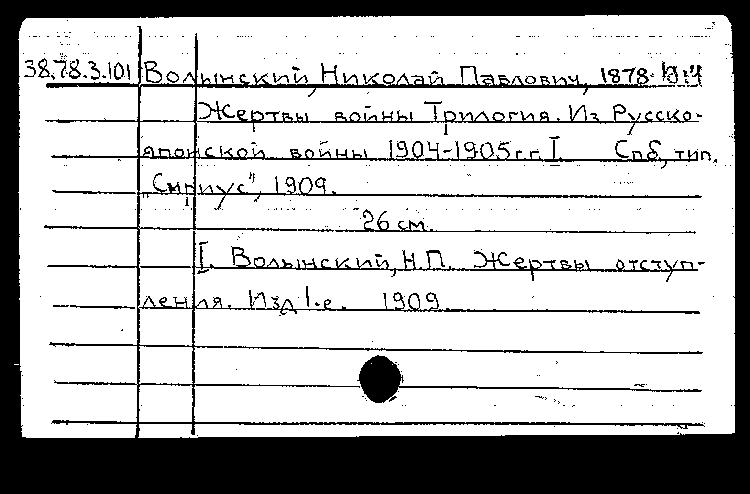 38.78.3.101 Волынский, Николай Павлович, 1878-
Жертвы войны Трилогия. Из Русско-
японской войны 1904-1905 г.г. I Спб, тип.
"Сириус", 1909.
26 см.
I. Волынский, Н.П. Жертвы отступ-
ления. Изд 1-е. 1909.